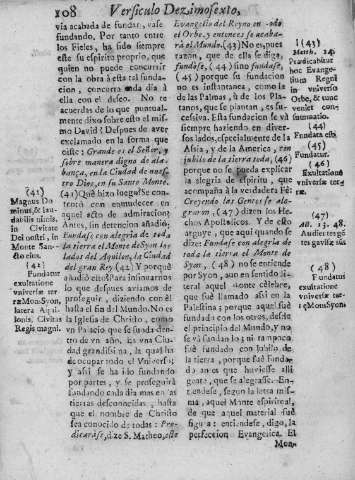 108 Versiculo Dezimosexto,
via acabada de fundar, vase
fundando. Por tanto entre
los Fieles, ha sido siempre
este su espiritu proprio, que
quien no puede concurrir
con la obra à esta tal funda-
cion, concurra cada dia à
ella con el deseo. No te
acuerdas de lo que puntual-
mente dixo sobre esto el mismo
David? Despues de aver
exclamado en la forma que
oiste: Grande es el Señor, y
sobre manera digno de ala-
bança, en la Ciudad de nues-
tro Dios, en su Santo Monte.
(41) Què hizo luego? Se con-
tentò con enmudecer en
aquel acto de admiracion?
Antes, sin detencion añadiò:
Fundase con alegria de toda
la tierra el Monte de Syon los
lados del Aquilon, la Ciudad
del gran Rey (42) Y porquè
añadiò esto? Para insinuarnos
lo que despues aviamos de
proseguir, diziendo con èl
hasta el fin del Mundo. No es
la Iglesia de Christo, como
vn Palacio que se funda dentro
de vn año. Es vna Ciu
dad grandissima, la qual ha
de ocupar todo el Vniverso;
y assi se ha ido fundando
por partes, y se proseguirà
fundando cada dia mas en las
tierras desconocidas, hasta
que el nombre de Christo
sea conocido de todas: Pre-
dicaràse, dize S. Matheo, este
Evangelio del Reyno en todo
el Orbe, y entonces se acaba-
rà el Mundo. (43) No es, pues
razon, que de ella se diga,
fundòse, (44) sino fundase,
(45) porque su fundacion
no es instantanea, como la
de las Palmas, ò de los Pla-
tanos, que se plantan, es su-
cessiva. Esta fundacion se và
siempre haziendo en diver-
sos lados, especialmente de la
Assia, y de la America, con
jubilo de la tierra toda, (46)
porque no se pueda explicar
la alegria de espiritu, que
acompaña à la verdadera Fè:
Creyendo las Gentes se ale-
graron, (47) dizen los He-
chos Apostolicos. Y de esto
se sigue, que aqui quando se
dize: Fundase con alegria de
toda la tierra el Monte de
Syon, (48) no se entiende
por Syon, aun en sentido li-
teral aquel Monte cèlebre,
que fuè llamado assi en la
Palestina; porque aquel fuè
fundado con los otros, desde
el principio del Mundo, y no
se và fundando; ni tampoco
fuè fundado con jubilo de
la tierra, porque fuè Funda-
do antes que huviesse alli
gente, que se alegrasse. En-
tiendese, segun la letra mis-
ma, aquel Monte espiritual,
de que aquel material fuè
figura: entiendese, digo, la
perfeccion Evangelica. El
Mon-
(41)
Magnus Do
minus, & lau-
dabilis nimis,
in Civitate
Dei nostri, in
Monte San-
cto eius.
(42)
Fundatur
exultatione
vniversæ ter-
ræ Mons Syon,
latera Aqui-
lonis, Civitas
Regis magni.
(43)
Matth. 14.
Prædicabitur
hoc Evange-
lium Regni
in vniverso
Orbe, & tunc
veniet con-
summatio.
(44)
Fundata est.
(45)
Fundatur.
(46)
Exultatione
vniversæ ter-
ræ.
(47)
Act. 13. 48.
Audientes gen-
tes gavisæ sunt
(48)
Fundatur
exultatione
vniversæ ter-
ræ Mons Syon.